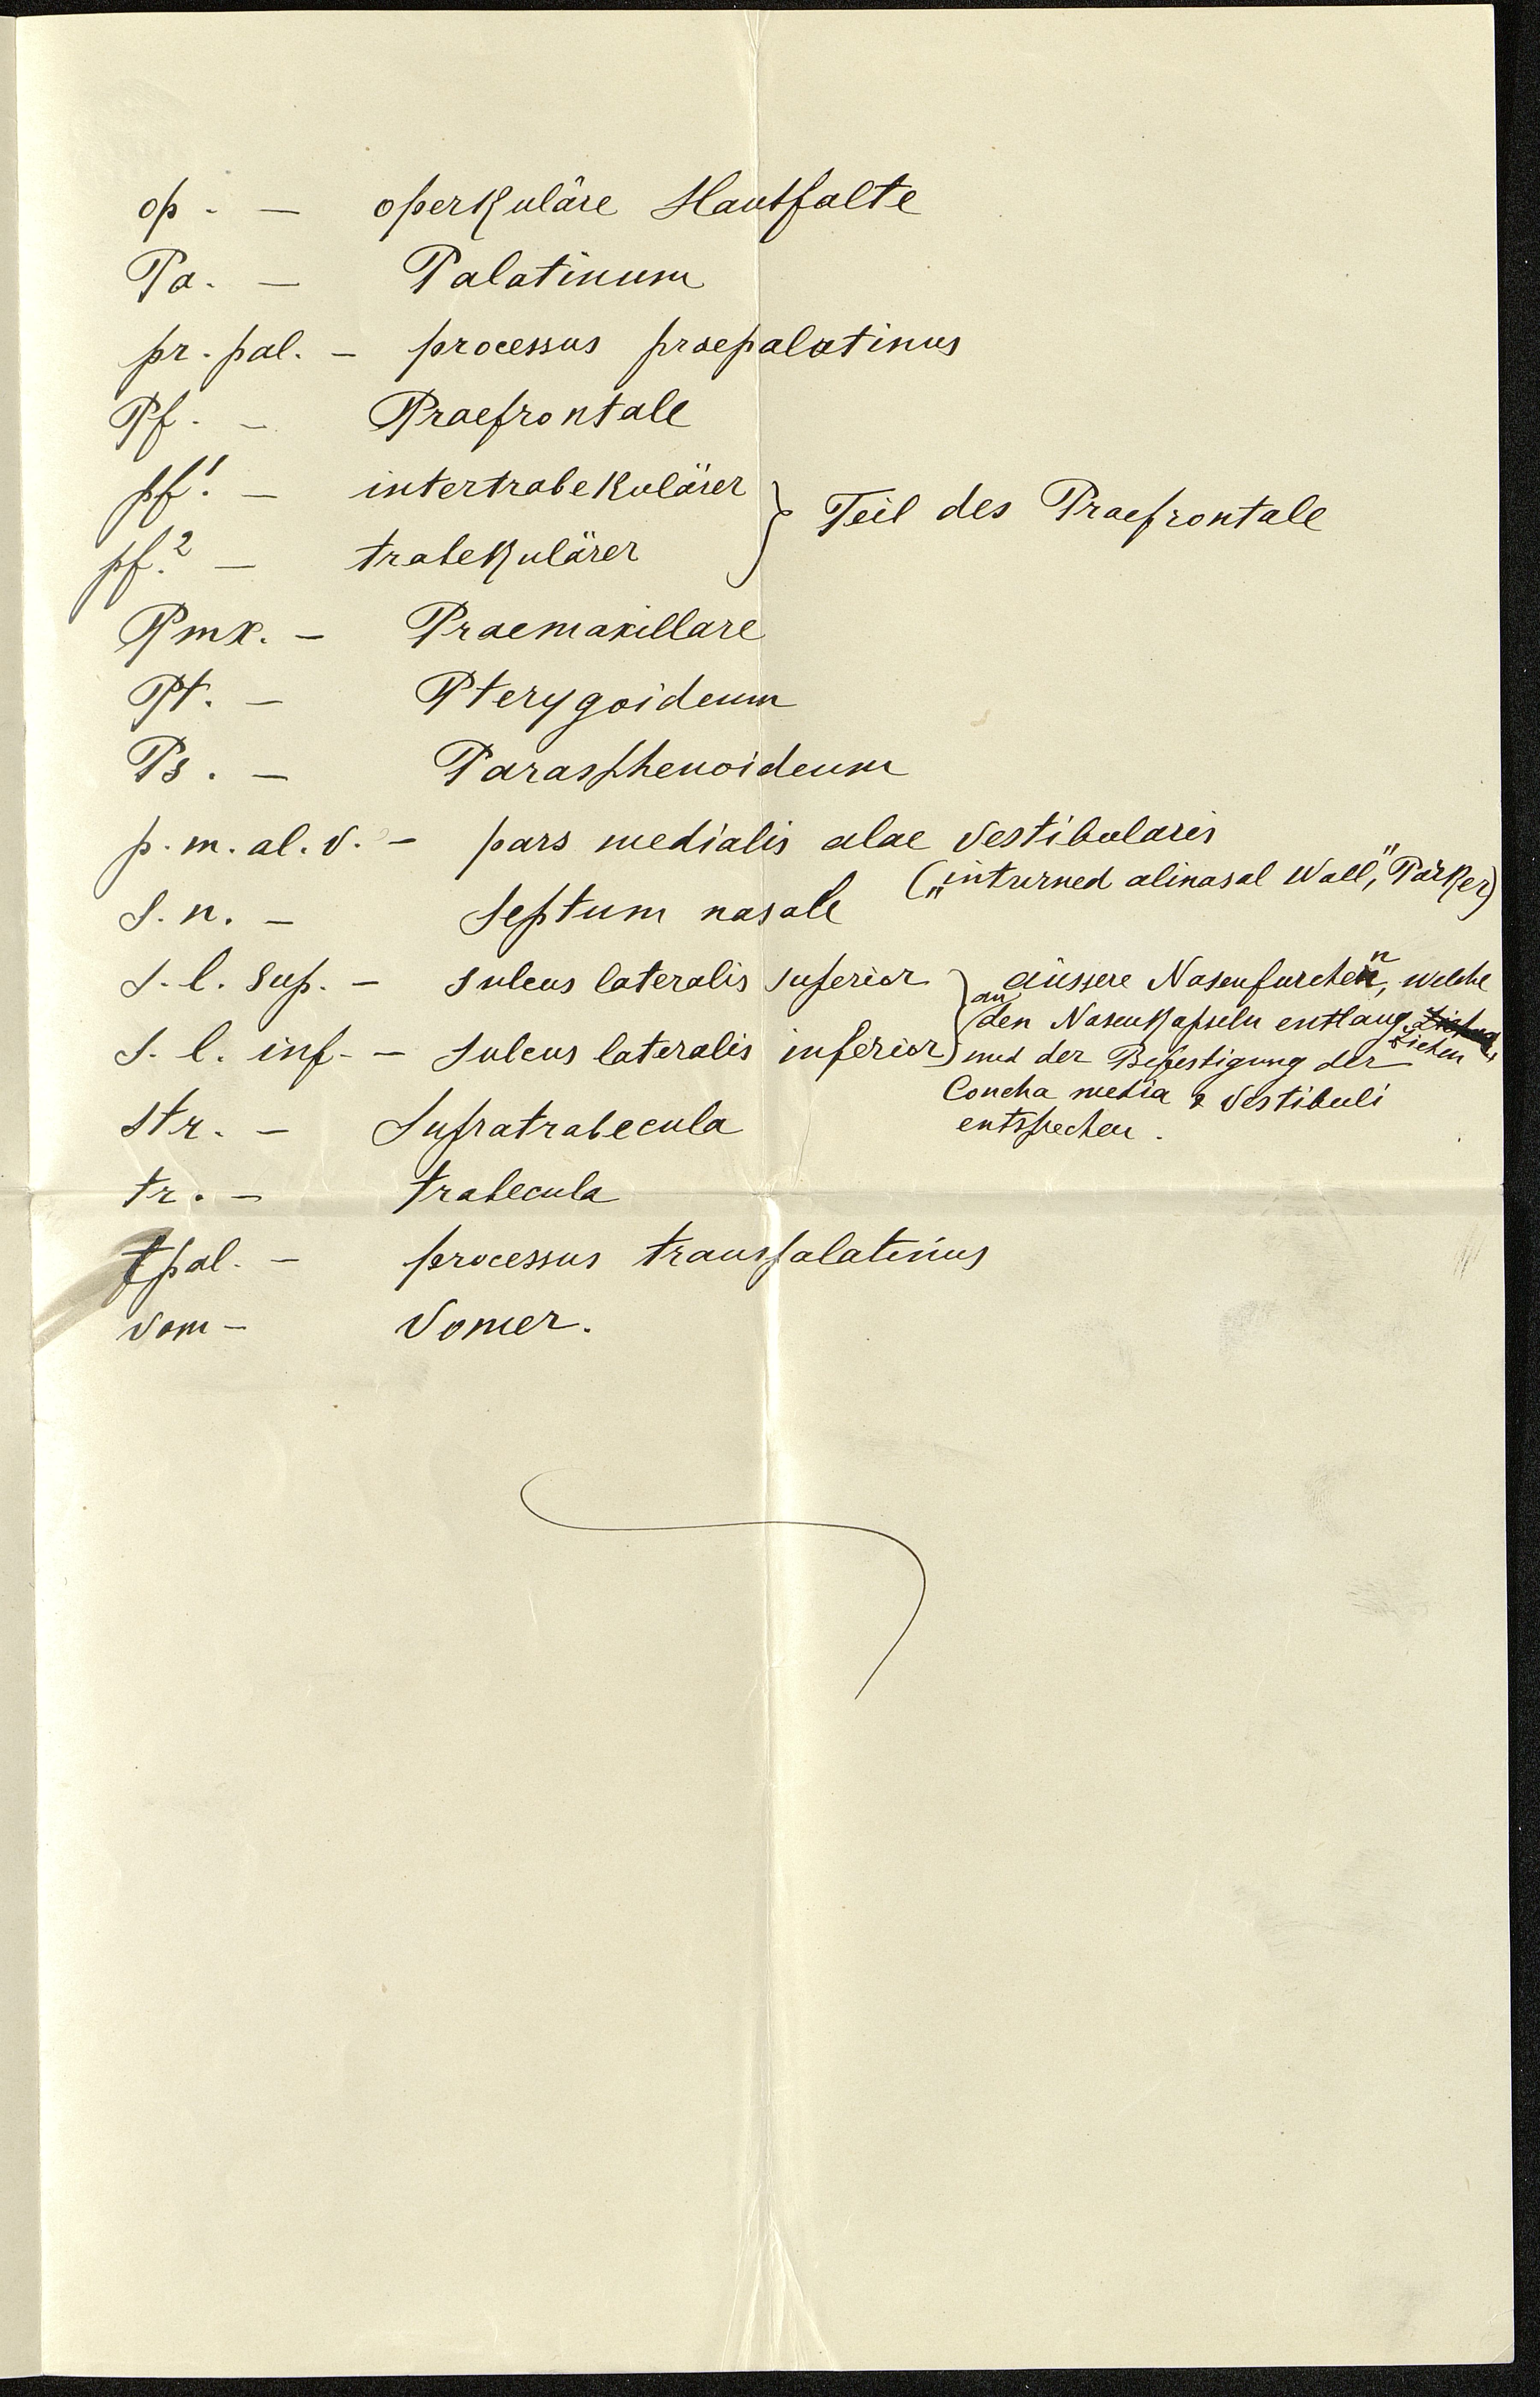 op. — operkuläre Hautfalte
Pa. — Palatinum
pr. pal. — processus praepalatinus
Pf. — Praefrontale
pf.¹ — intertrabekulärer } Teil des Praefrontale
pf.² — trabekulärer
Pmx. — Praemaxillare
Pt. — Pterygoideum
Ps. — Parasphenoideum
p. m. al. v. — pars medialis alae vestibularis
(„inturned alinasal wall", Parker)
S. n. — Septum nasale
S. l. sup. — sulcus lateralis superior } äussere Nasenfurchen, welche
an den Nasenkapseln entlang ziehen
S. l. inf. — sulcus lateralis inferior } und der Befestigung der
Concha media & Vestibuli
entsprechen.
Str. — Supratrabecula
tr. — trabecula
tpal. — processus transpalatinus
vom — Vomer.